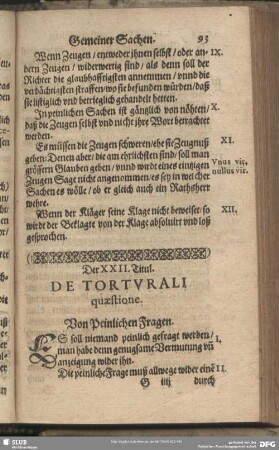 Gemeiner Sachen. 93
Wenn Zeugen / entweder ihnen selbst / oder an- IX.
dern Zeugen / widerwertig sind / als denn soll der
Richter die glaubhafftigsten annemmen / vnnd die
verdächtigsten straffen / wo sie befunden würden / daß
sie listiglich vnd betrieglich gehandelt hetten.
In peinlichen Sachen ist gäntzlich von nöhten / X.
daß die Zeugen selbst vnd nicht ihre Wort betrachtet
werden.
Es müssen die Zeugen schweren / ehe sie Zeugnuß XI.
geben: Denen aber / die am ehrlichsten sind / soll man
grössern Glauben geben / vnnd wirdt eines eintzigen Vnus vir,
Zeugen Sage nicht angenommen / es sey in welcher nullus vir.
Sachen es wölle / ob er gleich auch ein Rathsherr
wehre.
Wenn der Kläger seine Klage nicht beweiset / so XII.
wirdt der Beklagte von der Klage absolvirt vnd loß
gesprochen.
Der XXII. Titul.
DE TORTVRALI
quæstione.
Von Peinlichen Fragen.
ES soll niemand peinlich gefragt werden / I.
man habe denn genugsame Vermutung vñ
anzeigung wider ihn.
Die peinliche Frage muß allwege wider einẽ II.
G iiij durch
SLUB
DFG